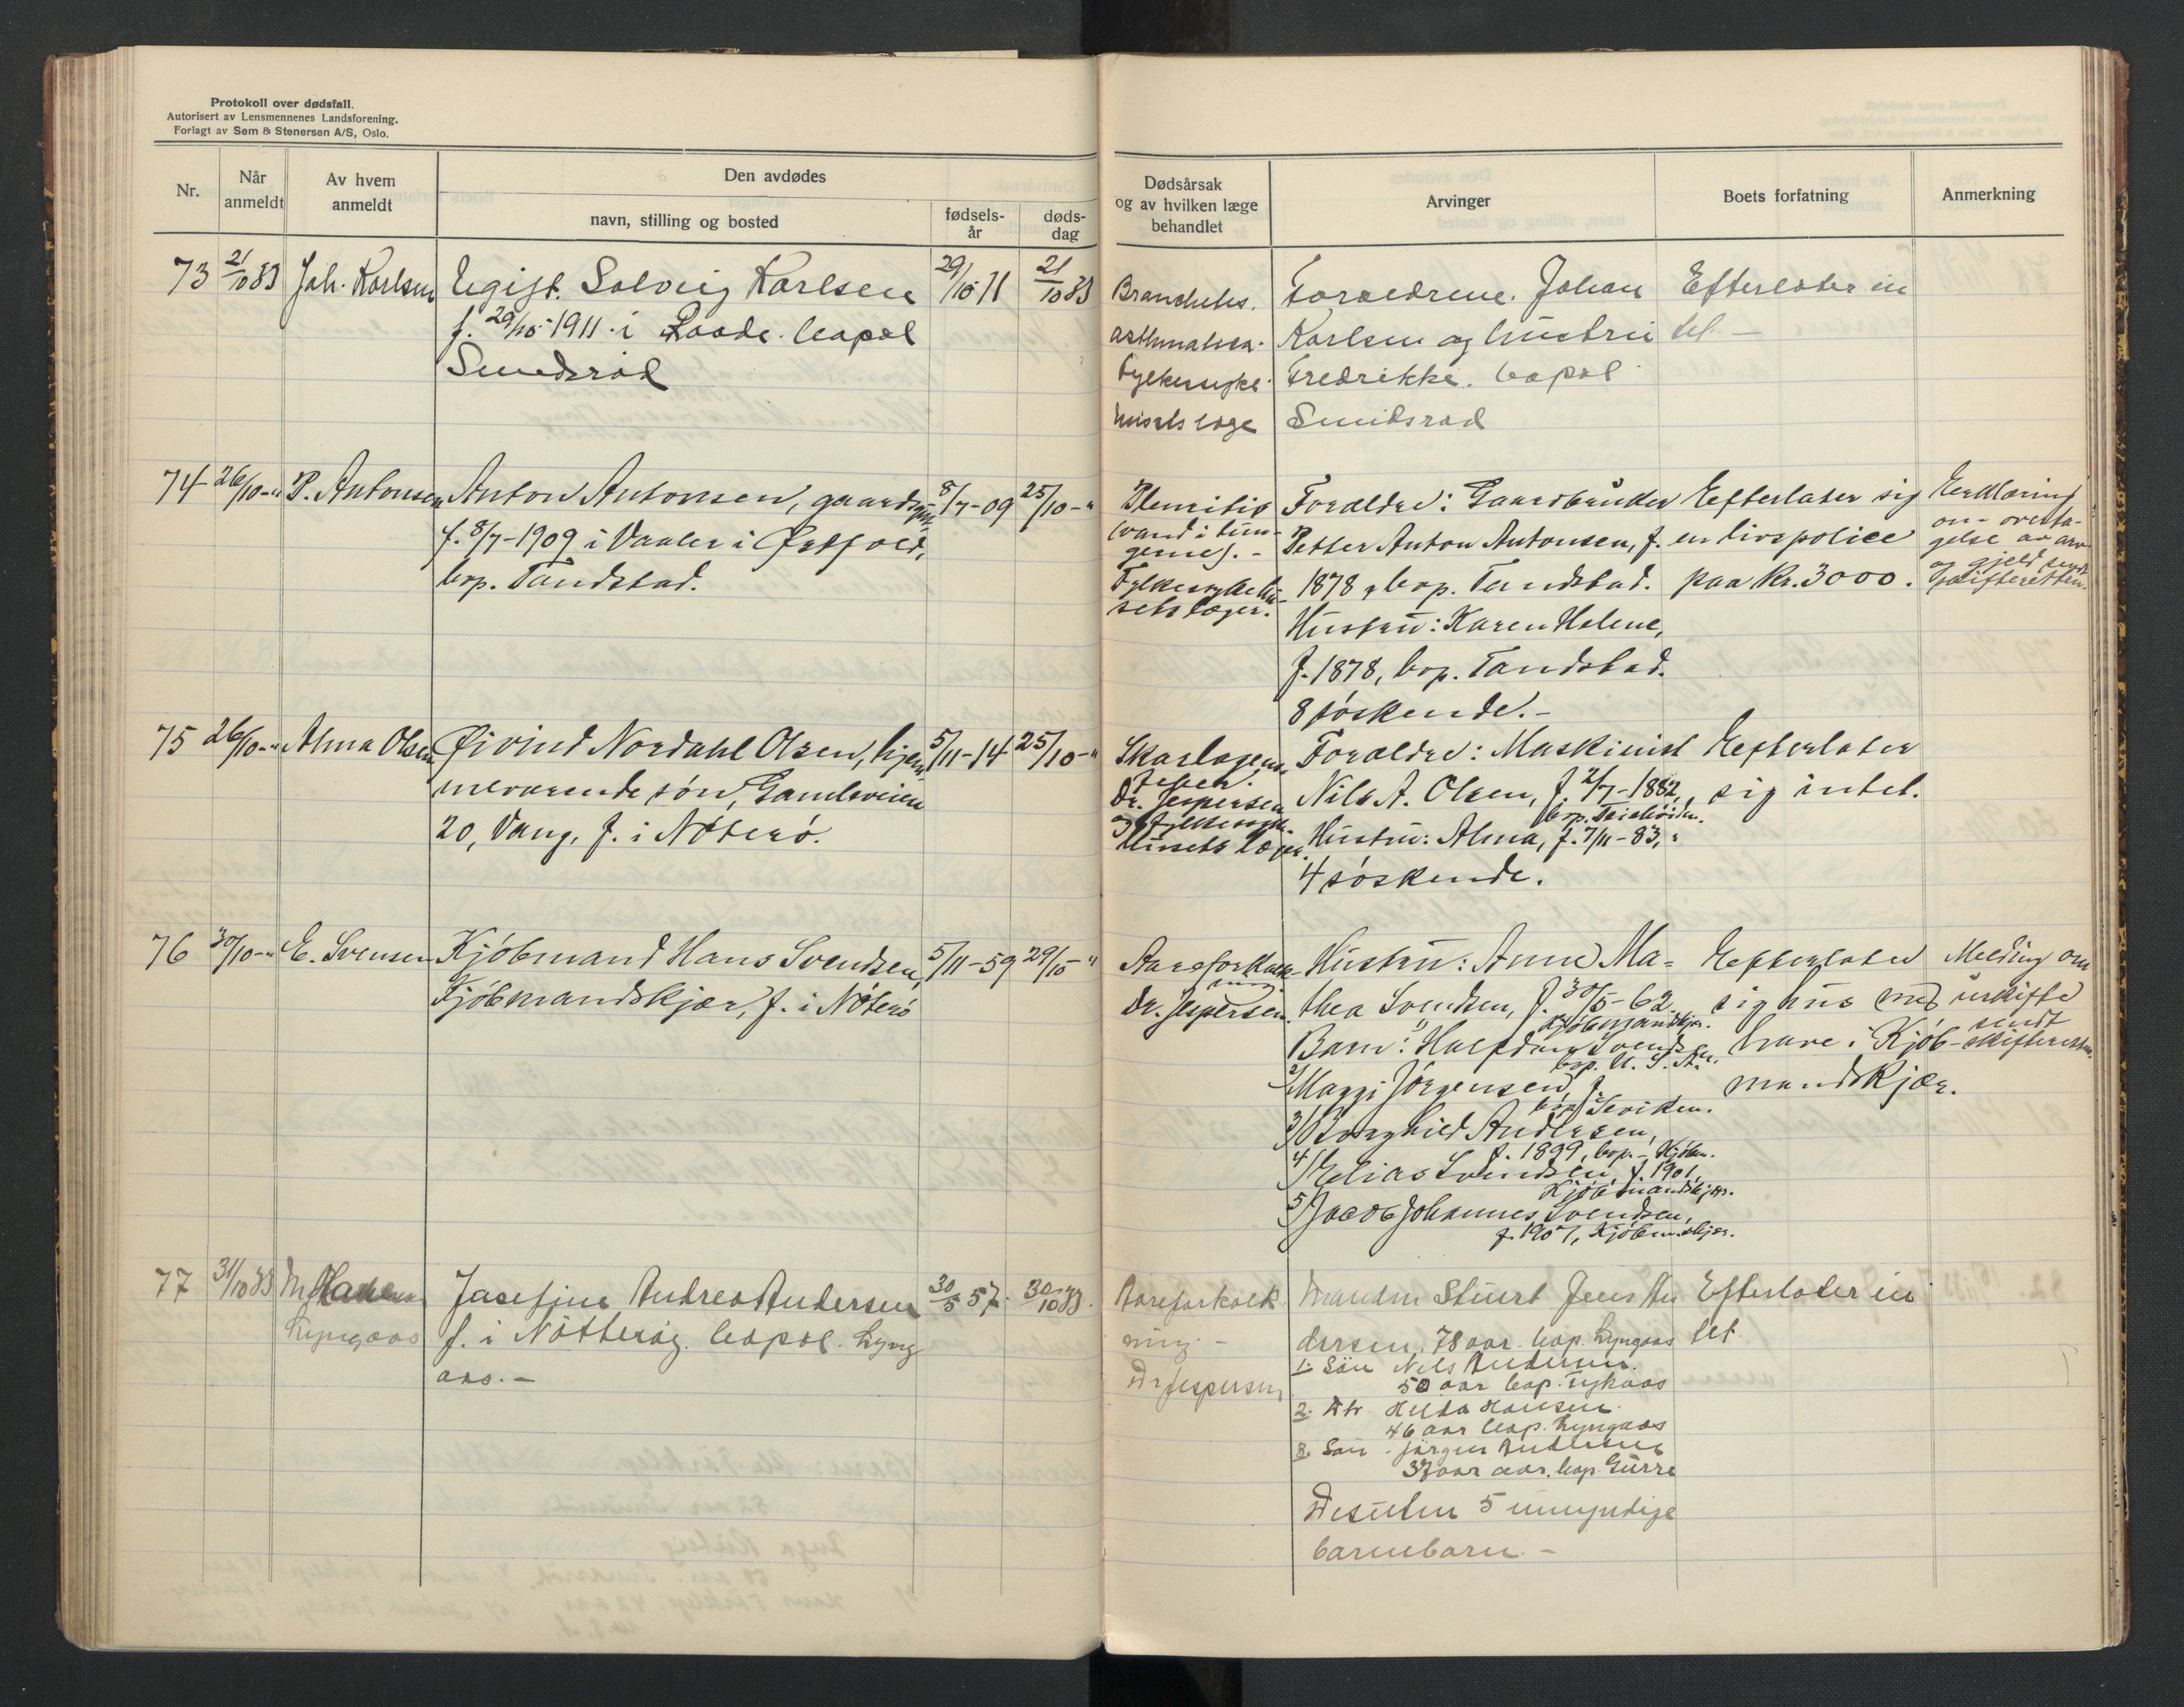 Protokoll over dødsfall.
Autorisert av Lensmennenes Landsforening.
Forlagt av Sem & Stenersen A/S, Oslo.
Nr.
Når anmeldt
Av hvem anmeldt
Den avdødes
navn, stilling og bosted
fødsels-år
døds-dag
Dødsårsak og av hvilken læge behandlet
Arvinger
Boets forfatning
Anmerkning
73 21/10 33 Joh. Karlsen
Ugift. Solveig Karlsen
f. 29/10-1911 i Raade. bopæl
29/10-11
21/10 33
Bronchites.
asthmatica.
Fylkessyke
husets læge
Foreldrene. Johan
Karlsen og hustru
Fredrikke. bopæl
Smidsrød
Efterlater in
tet. —
74 26/10-" P. Antonsen
Anton Antonsen, gaardsgut,
f. 8/7-1909 i Vaaler i Østfold,
bop. Tandstad.
8/7-09
25/10-"
Pleuritis
(vand i lun-
gene). -
Fylkessykehu-
sets læger.
Forældre: Gaardbruker
Petter Anton Antonsen, f.
1878, bop. Tandstad.
Hustru: Karen Helene,
f. 1878, bop. Tandstad.
8 søskende. -
Efterlater sig
en livspolice
paa Kr. 3000.
Erklæring
om overta-
gelse av arv
og gjeld sendt
skifteretten.
75 26/10-" Alma Olsen
Øivind Nordahl Olsen, hjem-
meværende søn, Gamleveien
20, Vang, f. i Nøterø.
5/11-14
25/10-"
Skarlagens-
feber.
Dr. Jespersen
og Fylkessyke-
husets læger.
Forældre: Maskinist
Nils A. Olsen, f. 2/7-1882,
Hustru: Alma, f. 7/11-83, "
4 søskende.
Efterlater
sig intet.
76 30/10-" E. Svensen
Kjøbmand Hans Svendsen,
Kjøbmandskjær, f. i Nøterø
5/11-59
29/10-"
Aareforkalk-
ning.
Dr. Jespersen.
Hustru: Anne Ma-
thea Svendsen, f. 30/5-62.
Kjøbmandskjær.
Barn: 1) Halfdan Svendsen
bop. U. S. A.
2) Maggi Jørgensen, f.
bop. Leviken.
3) Borghild Andersen,
f. 1899, bop. Kjøbm.
4) Elias Svendsen, f. 1901,
Kjøbmandskjær.
5) Jacob Johannes Svendsen,
f. 1907, Kjøbmandskjær.
Efterlater
sig hus med
have i Kjøb-
mandskjær.
Melding om
uskifte
sendt
skifteretten.
77 31/10 33 Hansen
Lyngaas
Josefine Andrea Andersen
f. i Nøtterøy. bopæl. Lyng
aas. —
30/5 57.
30/10 33.
Aareforkalk
ning —
Dr Jespersen
Manden Stuert Jens An
dersen, 78 aar. bop. Lyngaas
1. Søn Nils Andersen.
50 aar bop.
2. Dtr Hilda Hansen.
46 aar bop. Lyngaas
3. Søn Jørgen Andersen
37 aar bop.
Desuten 5 umyndige
barnebarn. —
Efterlater in
tet.